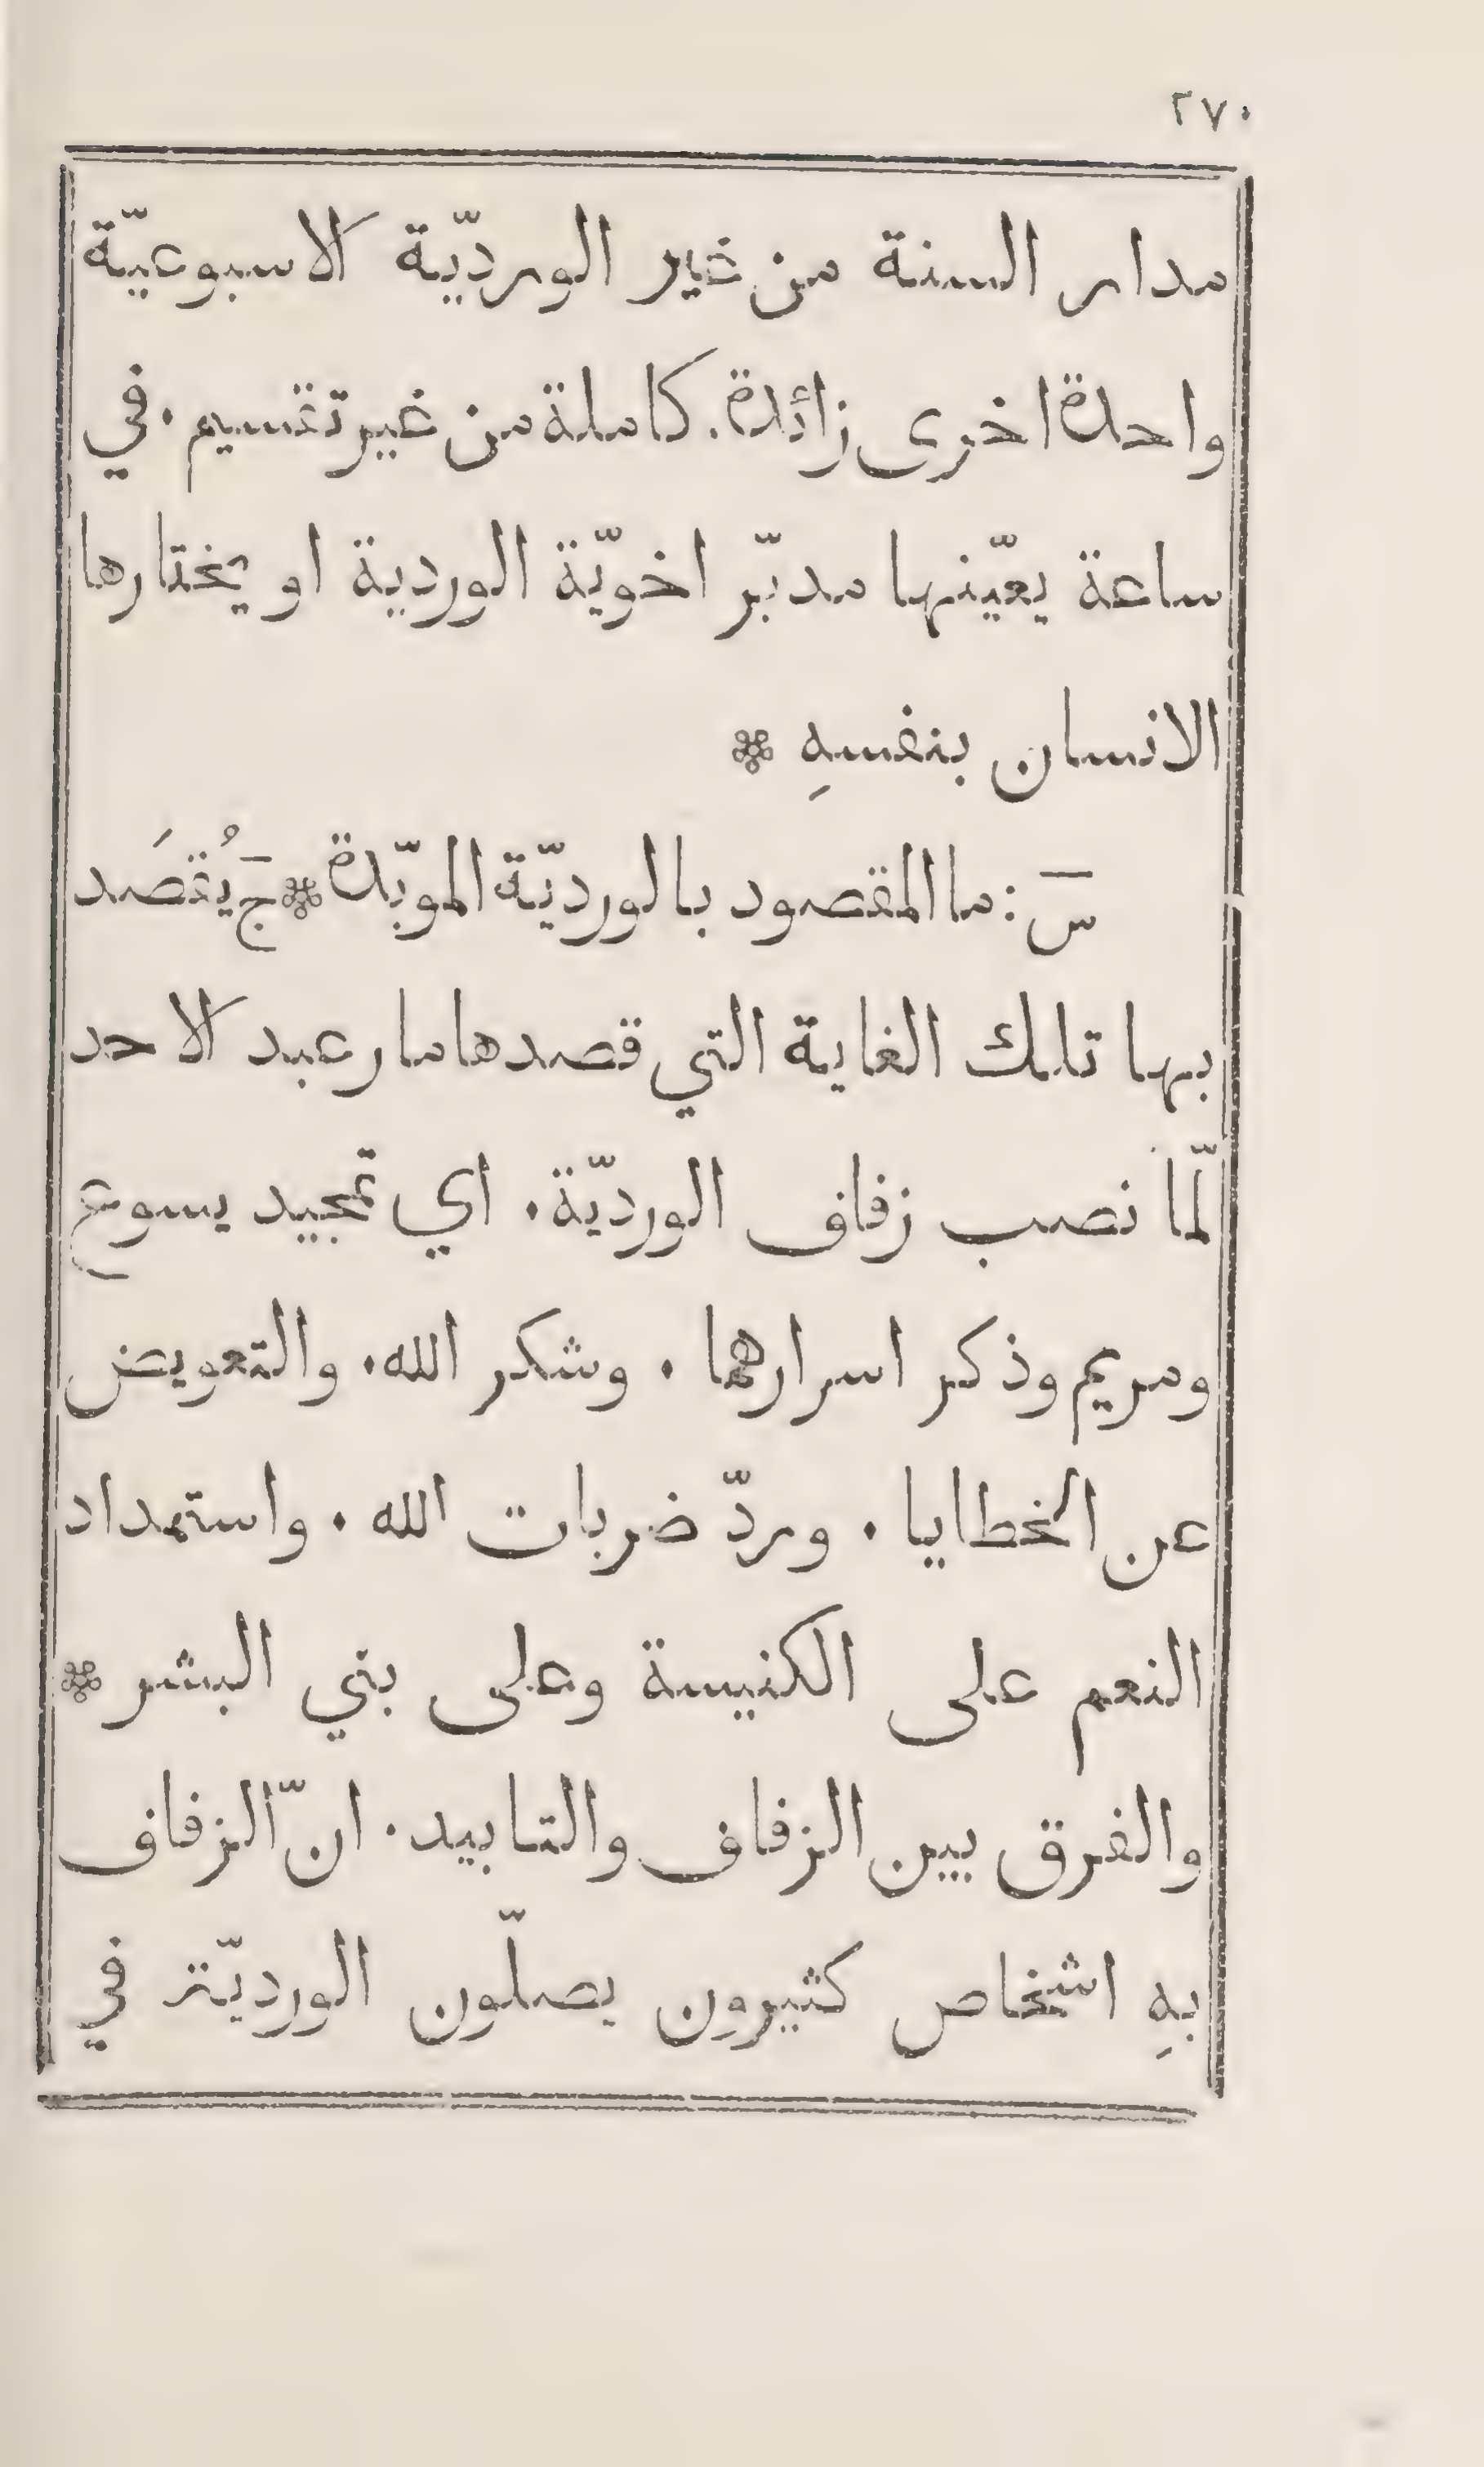 ٢٧٠
مدار السنة من غير الورديّة الاسبوعيّة
واحدة اخرى زائدة. كاملة من غير تقسيم. في
ساعة يعيّنها مدبّر اخويّة الوردية او يختارها
الانسان بنفسهِ ❊
سَ: ما المقصود بالورديّة الموبّدة ❊ جَ يُقصَد
بها تلك الغاية التي قصدها مار عبد الاحد
لمّا نصب زفاف الورديّة. اي تمجيد يسوع
ومريم وذكر اسرارهما. وشكر الله. والتعويض
عن الخطايا. وردّ ضربات الله. واستمداد
النعم على الكنيسة وعلى بني البشر ❊
والفرق بين الزفاف والتابيد. انّ الزفاف
بهِ اشخاص كثيرون يصلّون الورديّة في